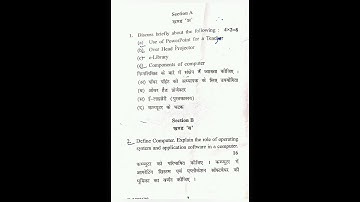 Section A
खण्ड 'अ'
1. Discuss briefly about the following : 4×2=8
(a) Use of PowerPoint for a Teacher
(b) Over Head Projector
(c) e-Library
(d) Components of computer
निम्नलिखित के बारे में संक्षेप में व्याख्या कीजिए :
(अ) पॉवर पॉइंट की अध्यापक के लिए उपयोगिता
(ब) ओवर हैड प्रोजेक्टर
(स) ई-लाइब्रेरी (पुस्तकालय)
(द) कम्प्यूटर के घटक
Section B
खण्ड 'ब'
2. Define Computer. Explain the role of operating
system and application software in a computer.
16
कम्प्यूटर को परिभाषित कीजिए । कम्प्यूटर में
आपरेटिंग सिस्टम एवं एप्लीकेशन सॉफ्टवेयर की
भूमिका का वर्णन कीजिए ।